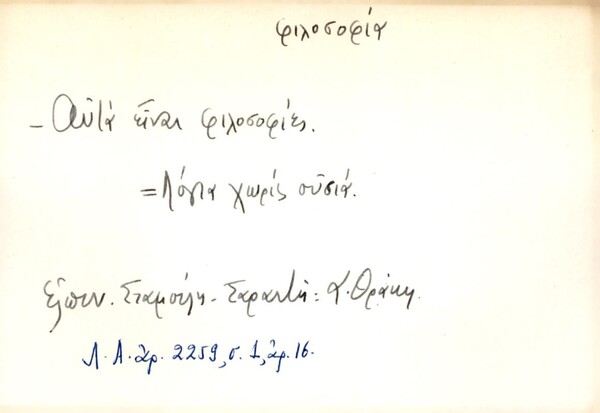 φιλοσοφία
- Αὐτά εἶναι φιλοσοφίες.
= Λόγια χωρίς οὐσιά.
Ἐλπιν. Σταμούλη - Σαραντῆ: Ἀ. Θράκη.
Λ. Α. ἀρ. 2259, σ. 1, ἀρ. 16.